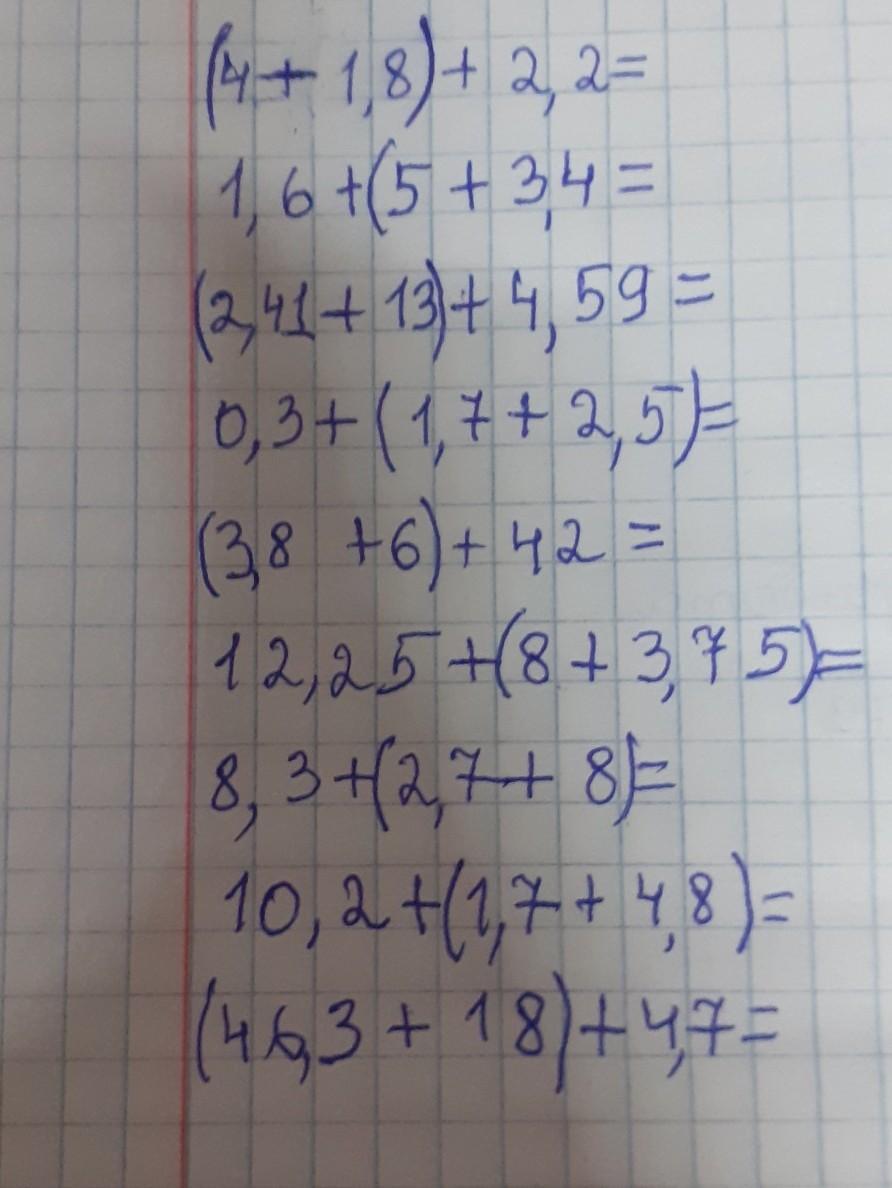 (4+ 1,8)+ 2,2=
1,6+(5 + 3,4=
(2,41+ 13)+ 4,59=
0,3+(1,7+ 2,5)=
(3,8 +6)+ 42=
12,25+(8+ 3,75)=
8,3+(2,7+ 8)=
10,2+(1,7+ 4,8)=
(46,3+ 18)+4,7=